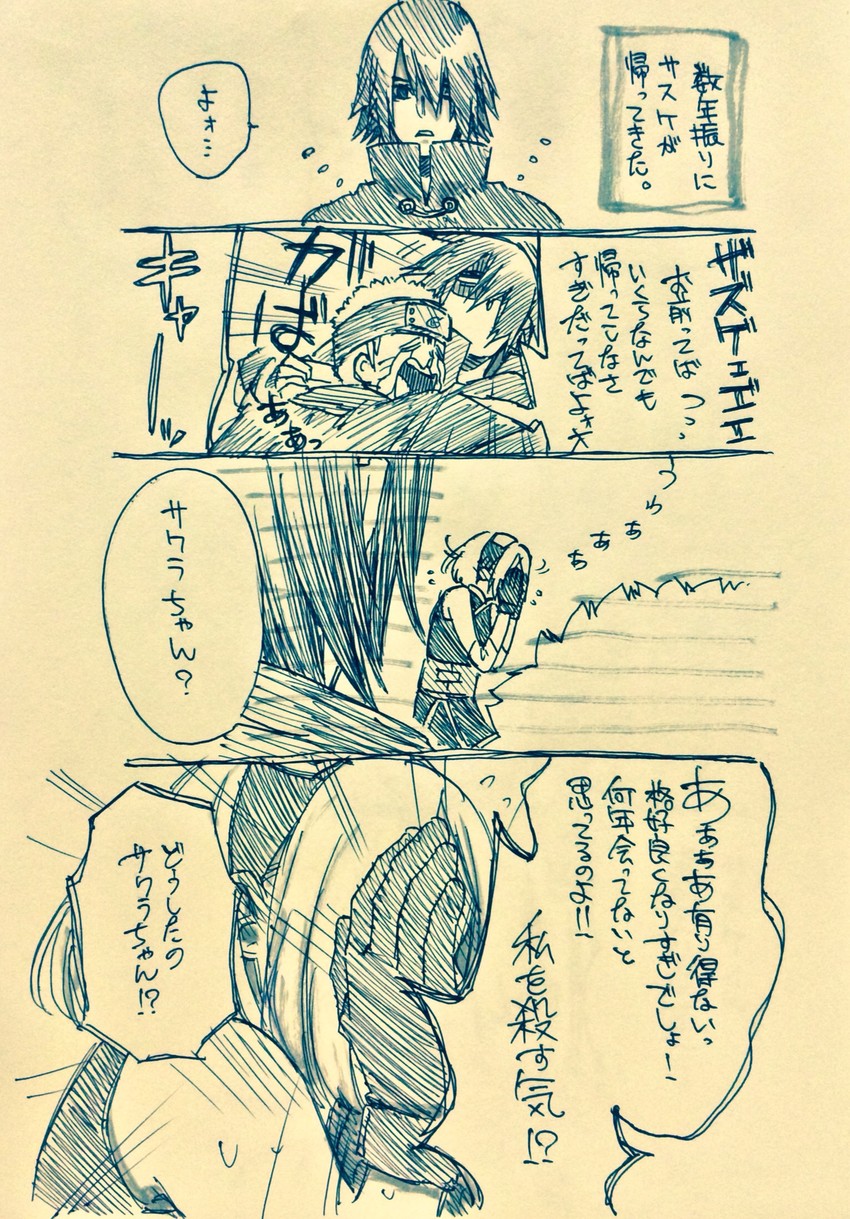 数年振りに
サスケが
帰ってきた。
よォ…
ザズゲェエエエ
お前ってばっっ
いくらなんでも
帰ってこなさ
すぎだってばよォォ
がばっ
ああっ
キャーーッ
うわあああ
サクラちゃん?
あぁぁあ有り得ないっ
格好良くなりすぎでしょー!
何年会ってないと
思ってるのよ!!
私を殺す気!?
どうしたの
サクラちゃん!?